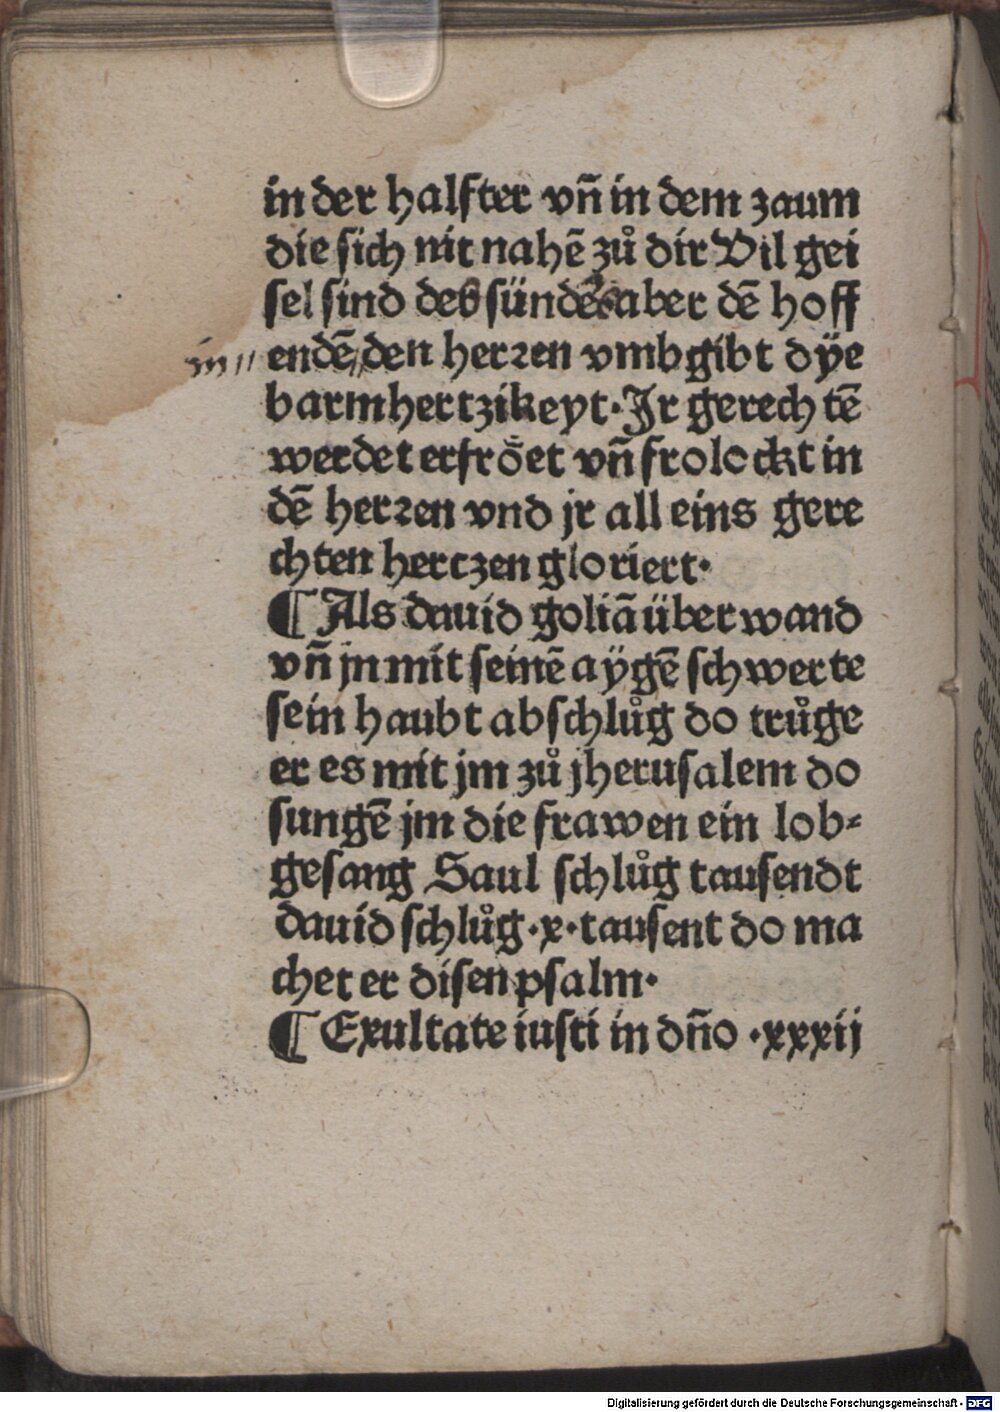 in der halfter vñ in dem zaum
die sich nit nahē zů dir Vil gei
sel sind des sündēs aber dē hoff
in // endē // den herren vmbgibt dÿe
barmhertzikeyt · Jr gerechtē
werdet erfröet vñ frolockt in
dē herren vnd jr all eins gere
chten hertzen gloriert ·
¶ Als dauid goliā überwand
vñ jn mit seinē aÿgē schwerte
sein haubt abschlůg do trůge
er es mit jm zů jherusalem do
sungē jm die frawen ein lob⸗
gesang Saul schlůg tausendt
dauid schlůg · x · tausent do ma
chet er disen psalm ·
¶ Exultate iusti in dño · xxxij
Digitalisierung gefördert durch die Deutsche Forschungsgemeinschaft - DFG